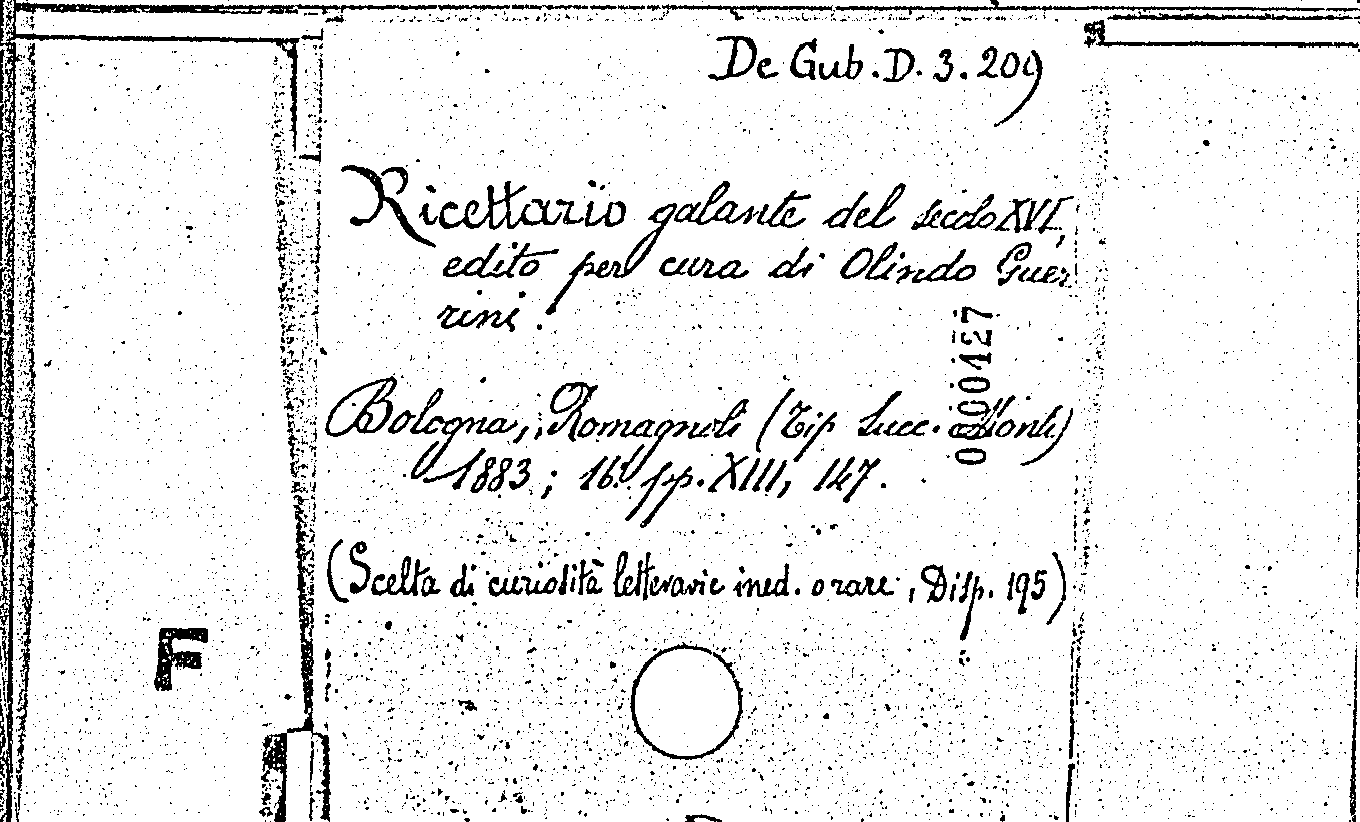 De Gub. D. 3. 209
Ricettario galante del secolo XVI,
edito per cura di Olindo Guer
rini.
000427
Bologna, Romagnoli (Tip Succ. Monti)
1883; 16° pp. XIII, 147.
(Scelta di curiosità letterarie ined. o rare, Disp. 195)
F